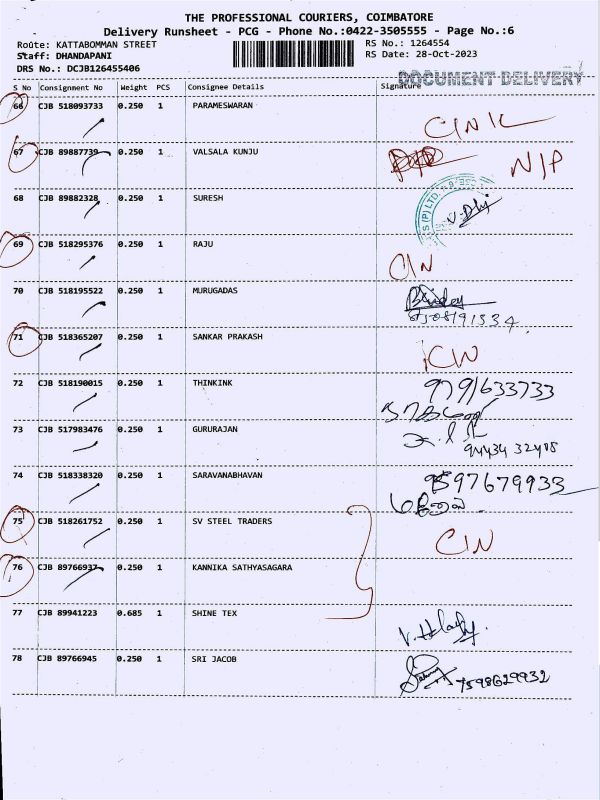 THE PROFESSIONAL COURIERS, COIMBATORE
Delivery Runsheet - PCG - Phone No.:0422-3505555 - Page No.:6
Route: KATTABOMMAN STREET RS No.: 1264554
Staff: DHANDAPANI RS Date: 28-Oct-2023
DRS No.: DCJB126455406 DOCUMENT DELIVERY
S No Consignment No Weight PCS Consignee Details Signature
66 CJB 518093733 0.250 1 PARAMESWARAN
67 CJB 89887739 0.250 1 VALSALA KUNJU N/P
68 CJB 89882328 0.250 1 SURESH
S (P) LTD.
69 CJB 518295376 0.250 1 RAJU C/N
70 CJB 518195522 0.250 1 MURUGADAS
71 CJB 518365207 0.250 1 SANKAR PRAKASH
72 CJB 518190015 0.250 1 THINKINK 9791633733
73 CJB 517983476 0.250 1 GURURAJAN
94434 32408
74 CJB 518338320 0.250 1 SARAVANABHAVAN 9597679933
75 CJB 518261752 0.250 1 SV STEEL TRADERS C/N
76 CJB 89766937 0.250 1 KANNIKA SATHYASAGARA
77 CJB 89941223 0.685 1 SHINE TEX
78 CJB 89766945 0.250 1 SRI JACOB
7598629932